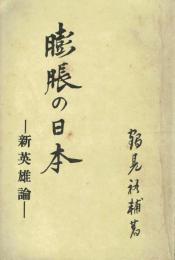 膨脹の日本
―新英雄論―
鶴見祐輔著